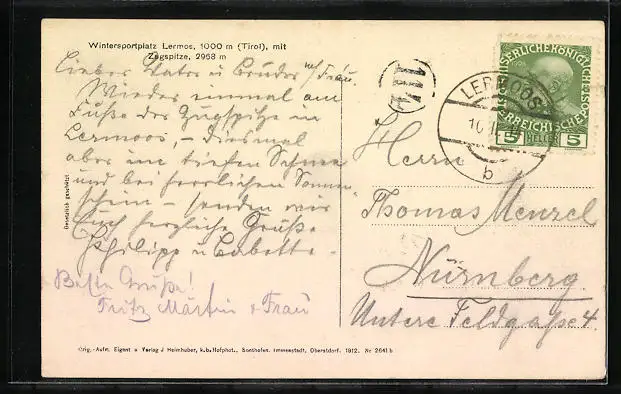 Wintersportplatz Lermos, 1000 m (Tirol), mit
Zugspitze, 2968 m
Lieber Vater u Bruder u/ Frau.
Wieder einmal am
Fuße der Zugspitze in
Lermoos, - diesmal
aber im tiefen Schnee
und bei herrlichen Sonnen-
schein - senden wir
Euch herzliche Grüße
Philipp u Babette.
Beste Grüße!
Fritz Märtin u Frau
Gesetzlich geschützt
KAISERLICHE KÖNIGLICHE
ÖSTERREICHISCHE POST
5 HELLER 5
LERMOOS
b
Herrn
Thomas Menzel
Nürnberg
Untere Feldgaße 4.
Orig.-Aufn. Eigent u Verlag J Heimhuber, k.b. Hofphot., Sonthofen, Immenstadt, Oberstdorf. 1912. Nr 2641 b